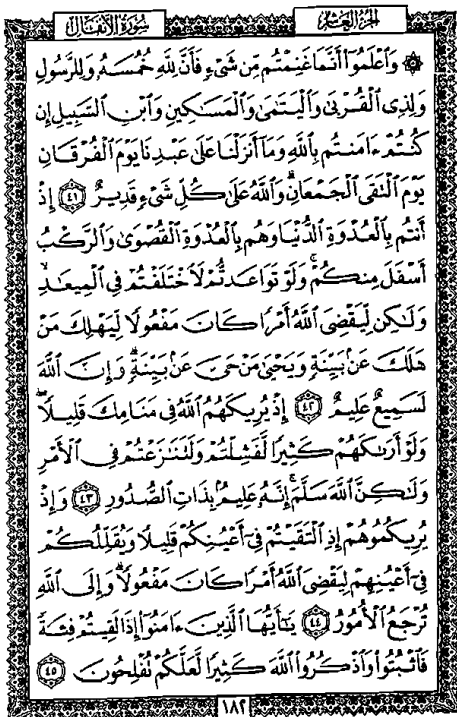 الجزء العاشر
سورة الأنفال
۞ وَٱعۡلَمُوٓاْ أَنَّمَا غَنِمۡتُم مِّن شَيۡءٖ فَأَنَّ لِلَّهِ خُمُسَهُۥ وَلِلرَّسُولِ
وَلِذِي ٱلۡقُرۡبَىٰ وَٱلۡيَتَٰمَىٰ وَٱلۡمَسَٰكِينِ وَٱبۡنِ ٱلسَّبِيلِ إِن
كُنتُمۡ ءَامَنتُم بِٱللَّهِ وَمَآ أَنزَلۡنَا عَلَىٰ عَبۡدِنَا يَوۡمَ ٱلۡفُرۡقَانِ
يَوۡمَ ٱلۡتَقَى ٱلۡجَمۡعَانِۗ وَٱللَّهُ عَلَىٰ كُلِّ شَيۡءٖ قَدِيرٌ ٤١ إِذۡ
أَنتُم بِٱلۡعُدۡوَةِ ٱلدُّنۡيَا وَهُم بِٱلۡعُدۡوَةِ ٱلۡقُصۡوَىٰ وَٱلرَّكۡبُ
أَسۡفَلَ مِنكُمۡۚ وَلَوۡ تَوَاعَدتُّمۡ لَٱخۡتَلَفۡتُمۡ فِي ٱلۡمِيعَٰدِ
وَلَٰكِن لِّيَقۡضِيَ ٱللَّهُ أَمۡرٗا كَانَ مَفۡعُولٗا لِّيَهۡلِكَ مَنۡ
هَلَكَ عَنۢ بَيِّنَةٖ وَيَحۡيَىٰ مَنۡ حَيَّ عَنۢ بَيِّنَةٖۗ وَإِنَّ ٱللَّهَ
لَسَمِيعٌ عَلِيمٌ ٤٢ إِذۡ يُرِيكَهُمُ ٱللَّهُ فِي مَنَامِكَ قَلِيلٗاۖ
وَلَوۡ أَرَىٰكَهُمۡ كَثِيرٗا لَّفَشِلۡتُمۡ وَلَتَنَٰزَعۡتُمۡ فِي ٱلۡأَمۡرِ
وَلَٰكِنَّ ٱللَّهَ سَلَّمَۚ إِنَّهُۥ عَلِيمُۢ بِذَاتِ ٱلصُّدُورِ ٤٣ وَإِذۡ
يُرِيكُمُوهُمۡ إِذِ ٱلۡتَقَيۡتُمۡ فِيٓ أَعۡيُنِكُمۡ قَلِيلٗا وَيُقَلِّلُكُمۡ
فِيٓ أَعۡيُنِهِمۡ لِيَقۡضِيَ ٱللَّهُ أَمۡرٗا كَانَ مَفۡعُولٗاۗ وَإِلَى ٱللَّهِ
تُرۡجَعُ ٱلۡأُمُورُ ٤٤ يَٰٓأَيُّهَا ٱلَّذِينَ ءَامَنُوٓاْ إِذَا لَقِيتُمۡ فِئَةٗ
فَٱثۡبُتُواْ وَٱذۡكُرُواْ ٱللَّهَ كَثِيرٗا لَّعَلَّكُمۡ تُفۡلِحُونَ ٤٥
١٨٢